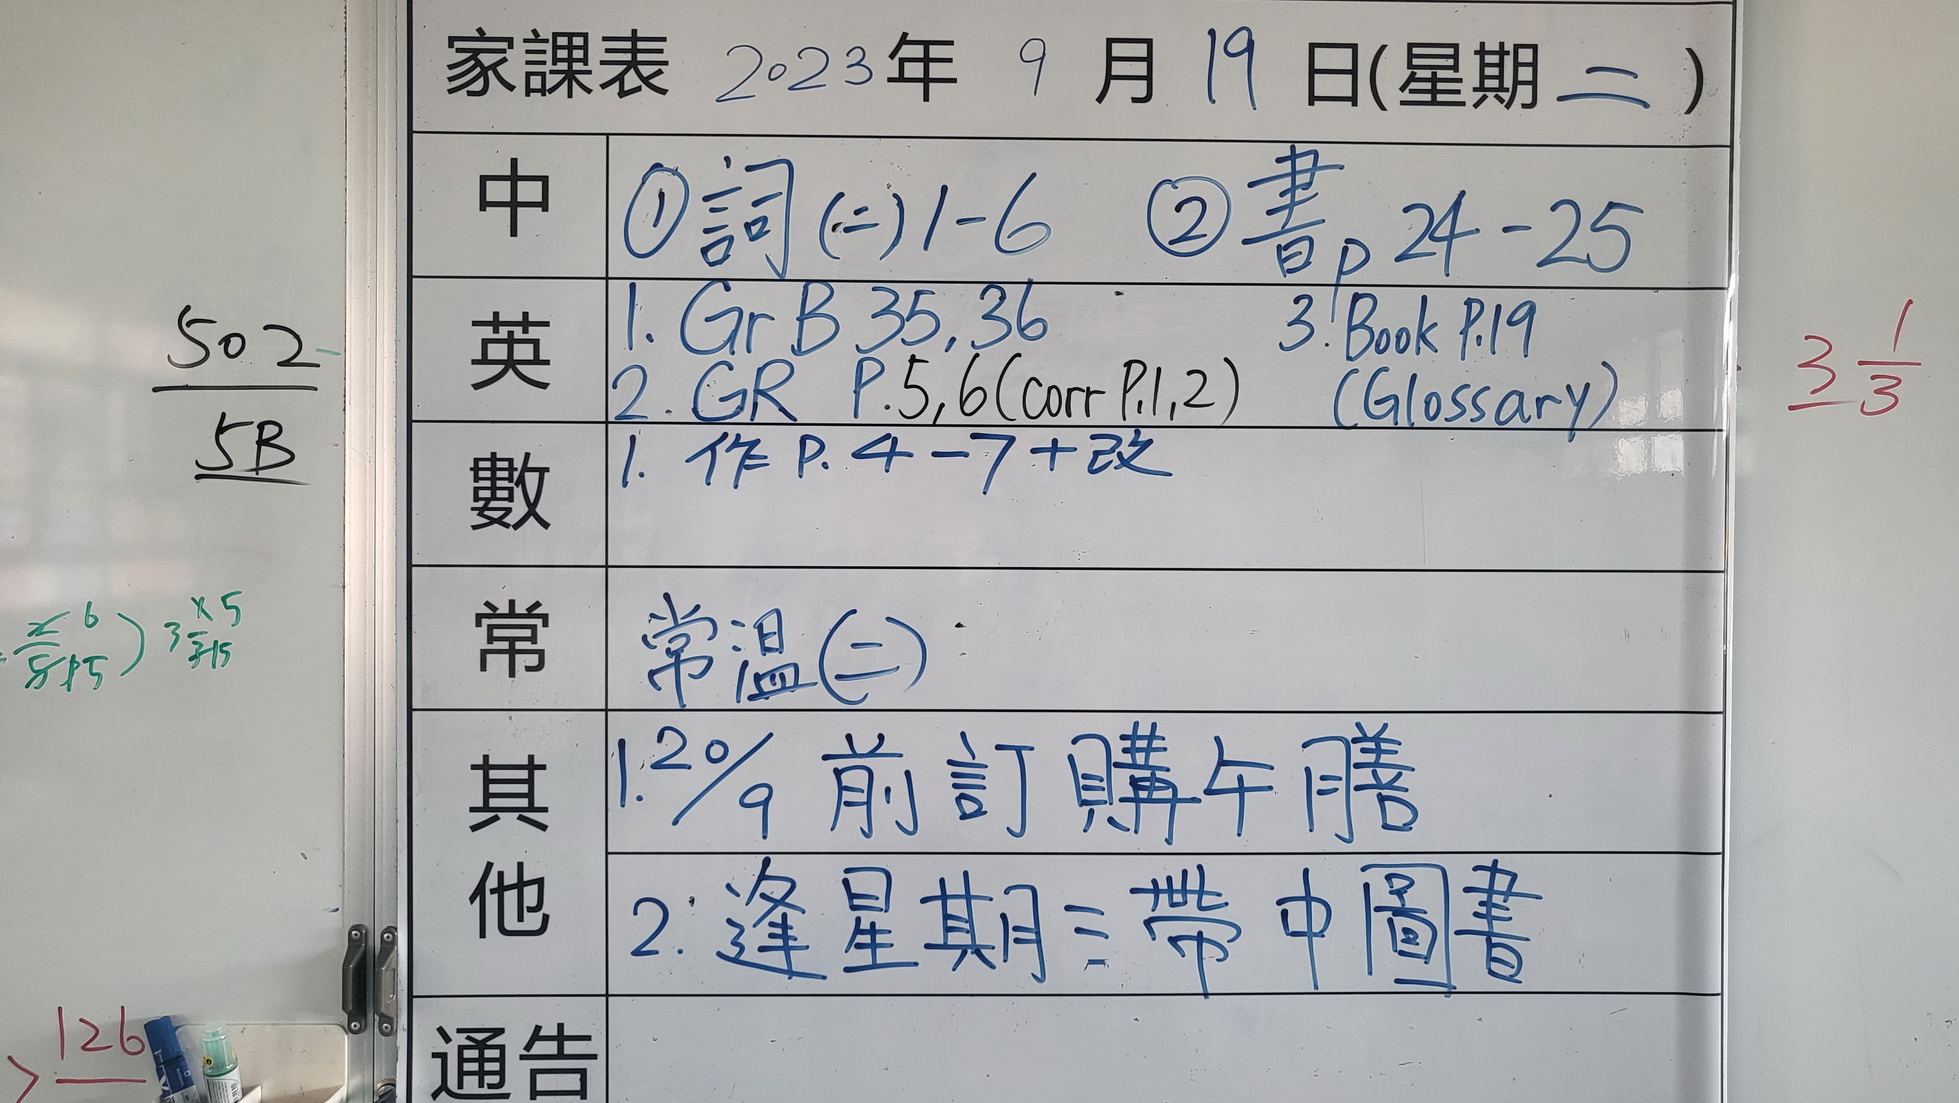 家課表 2023年 9 月 19 日(星期二)
中 ①詞(二)1-6 ②書p 24-25
英 1. Gr B 35,36 3. Book P.19
2. GR P.5,6(corr P.1,2) (Glossary)
數 1. 作 P. 4-7+改
常 常溫(二)
其他 1. 20/9 前訂購午膳
2. 逢星期三帶中圖書
通告
502
5B
3 1/3
126